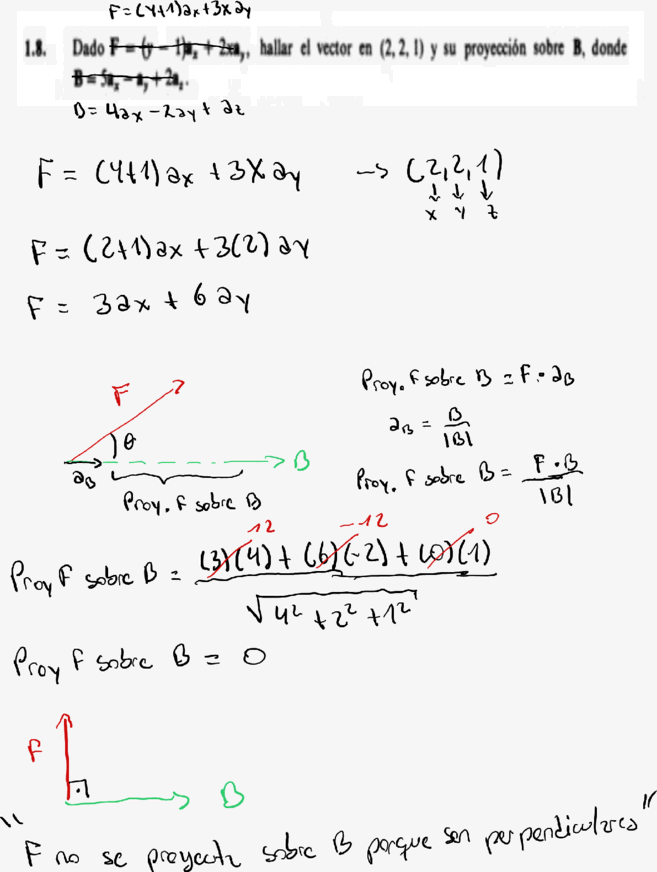 F=(y+1)ax+3x ay
1.8. Dado F = (y − 1)aₓ + 2xaᵧ, hallar el vector en (2, 2, 1) y su proyección sobre B, donde
B = 5aₓ − aᵧ + 2a_z.
B= 4ax −2ay + az
F = (y+1) ax + 3x ay → (2,2,1)
↓ ↓ ↓
x y z
F = (2+1) ax + 3(2) ay
F = 3ax + 6 ay
Proy. F sobre B = F · aB
F
aB = B/|B|
θ
B
Proy. F sobre B = F · B/|B|
aB
Proy. F sobre B
12 −12 0
Proy F sobre B = (3)(4) + (6)(−2) + (0)(1)
√4² + 2² + 1²
Proy F sobre B = 0
F
B
"F no se proyecta sobre B porque son perpendiculares"